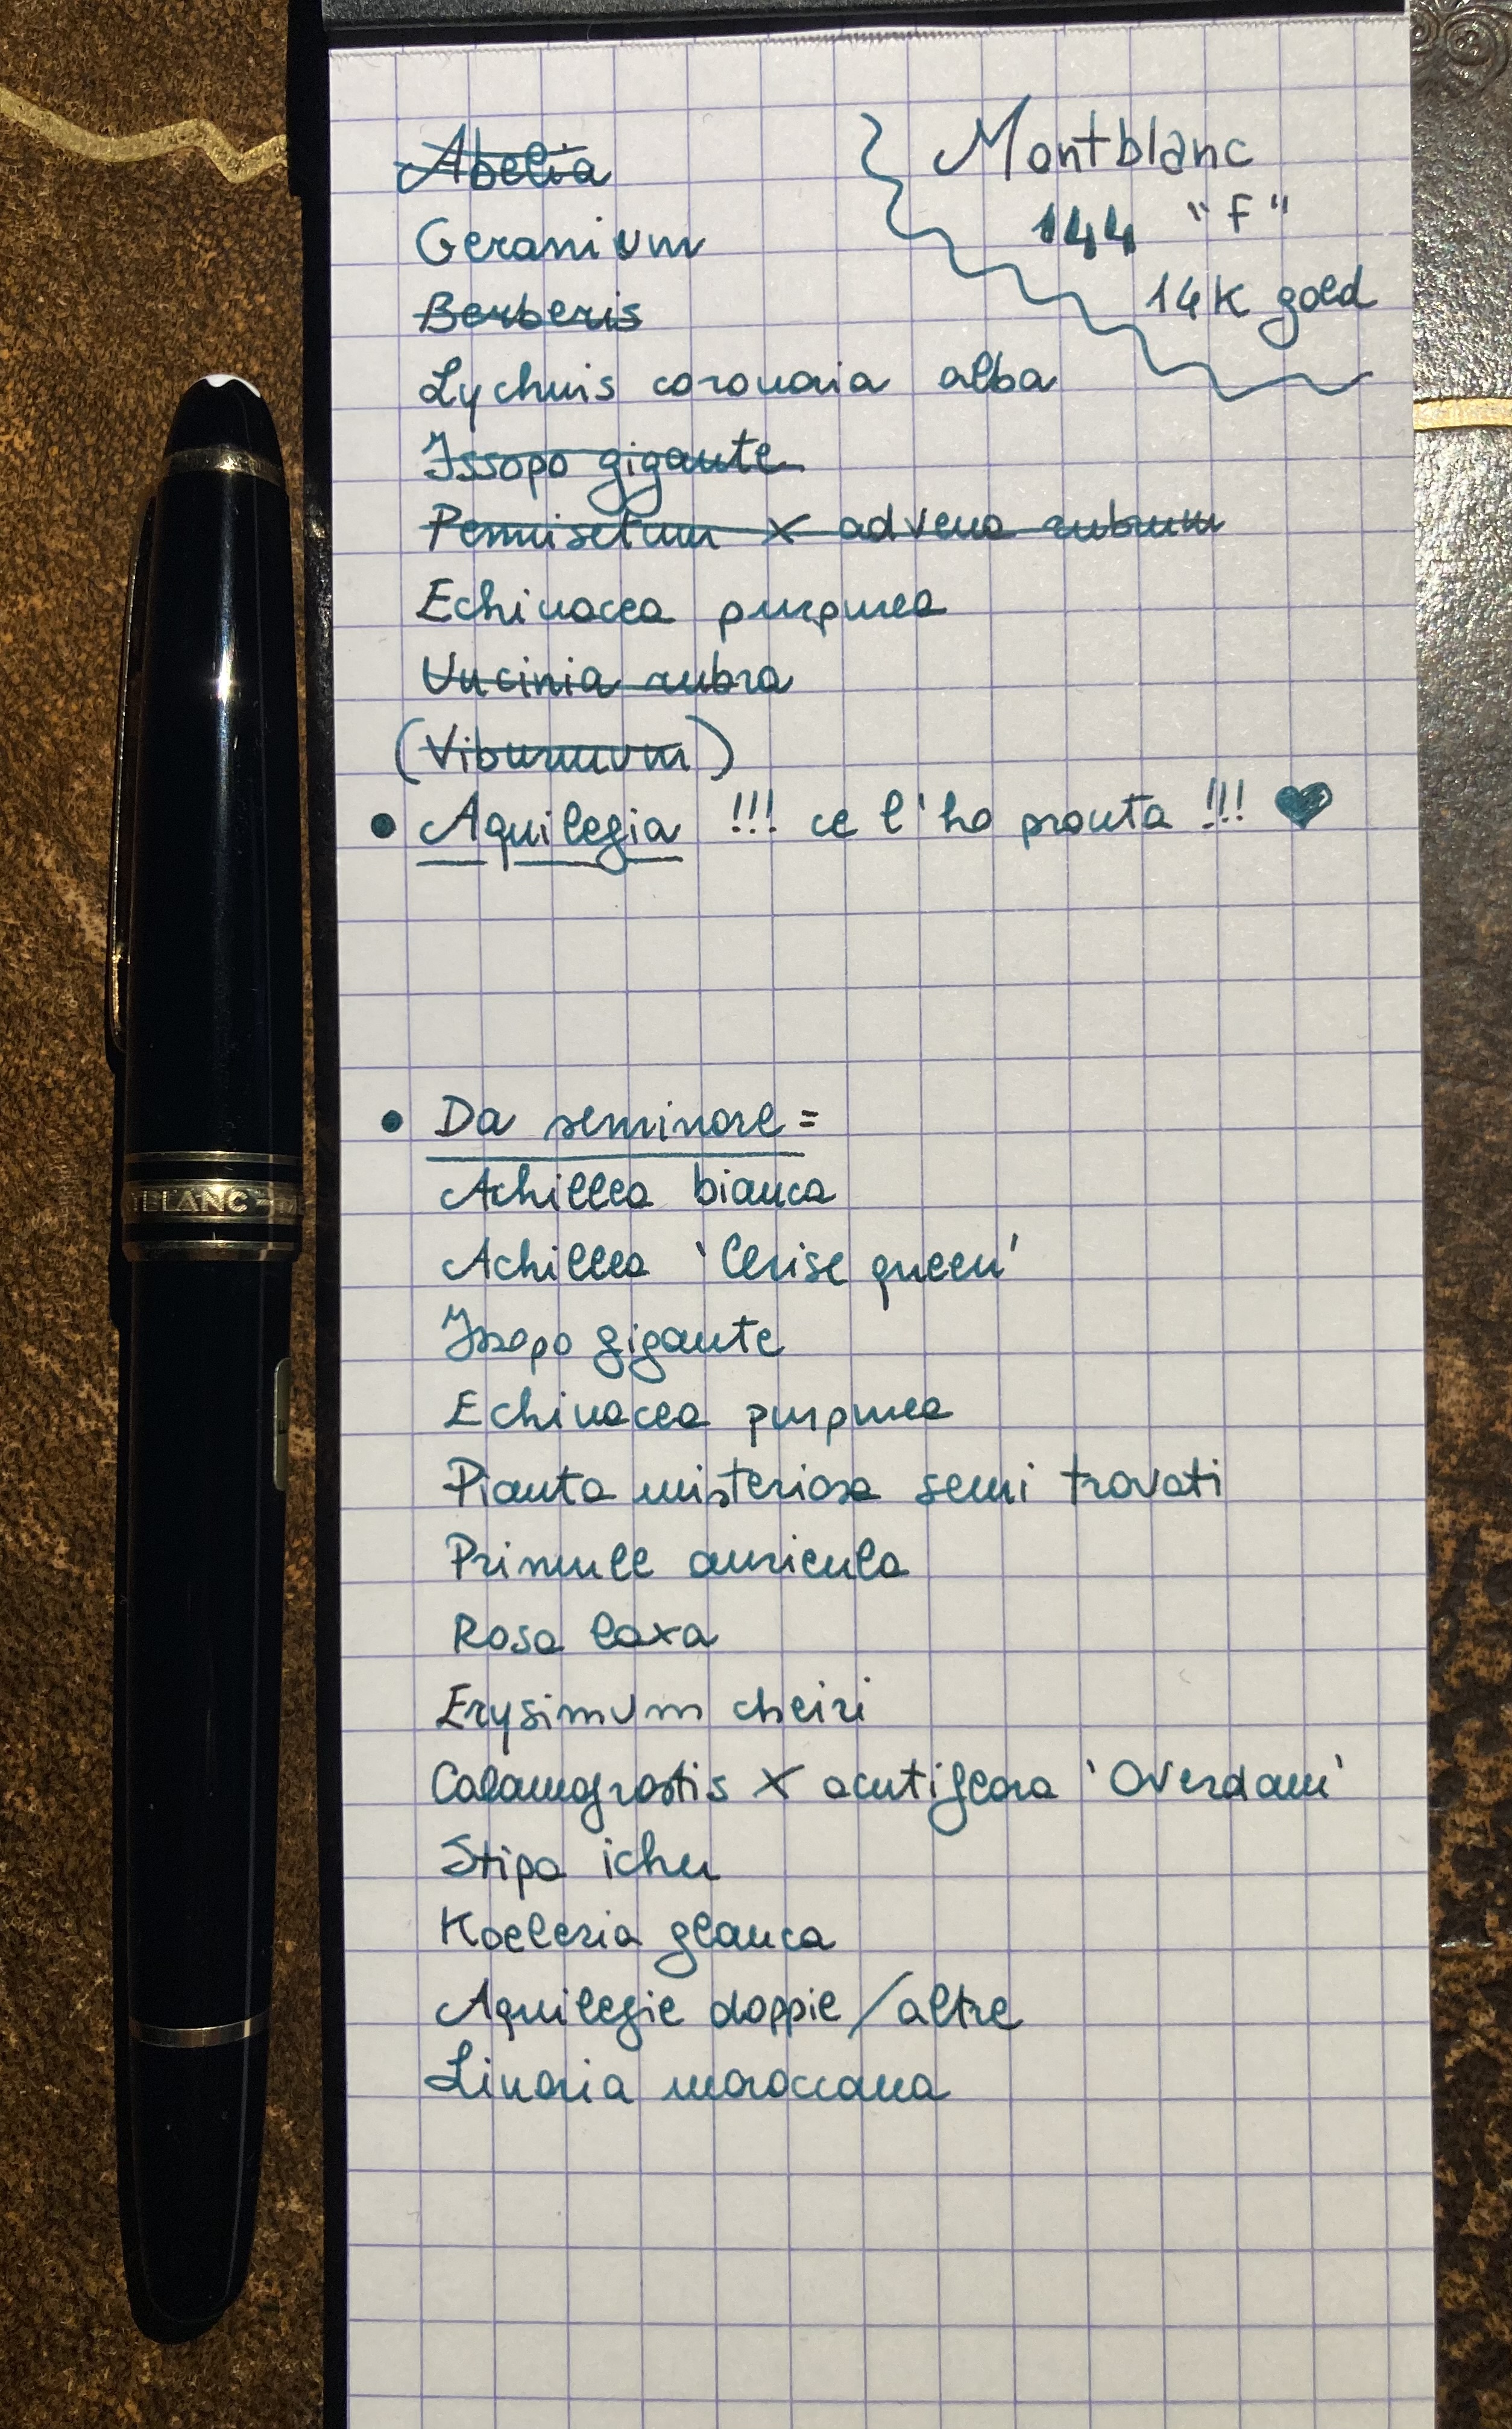 Abelia
Montblanc
144 "F"
14K gold
Geranium
Berberis
Lychnis coronaria alba
Issopo gigante
Pennisetum x advena rubrum
Echinacea purpurea
Uncinia rubra
(Viburnum)
• Aquilegia !!! ce l'ho pronta !!! ♥
• Da seminare =
Achillea bianca
Achillea 'Cerise queen'
Issopo gigante
Echinacea purpurea
Pianta misteriosa semi trovati
Primule auricula
Rosa laxa
Erysimum cheiri
Calamagrostis x acutiflora 'Overdam'
Stipa ichu
Koeleria glauca
Aquilegie doppie/altre
Linaria maroccana
BLANC